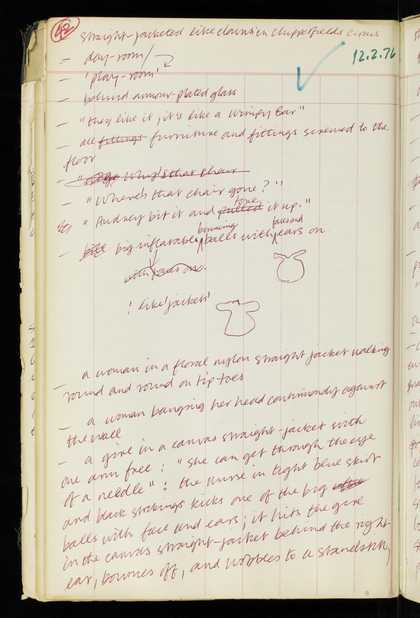 42
straight-jacketed like clowns in Chipperfields Circus
12.2.76
— day-room/
— 'play-room'
— behind armour-plated glass
— "they like it, it's like a Wimpy Bar"
— all fittings furniture and fittings screwed to the
floor
— "Who's that chair
— "Where's that chair gone?"
"Audrey bit it and pulled tore it up."
— big inflatable bouncing balls with faces and ears on
with ears on.
! like 'jackets'
— a woman in a floral nylon straight jacket walking
round and round on tip toes
— a woman banging her head continuously against
the wall
— a girl in a canvas straight-jacket with
one arm free: "she can get through the eye
of a needle": the nurse in tight blue skirt
and black stockings kicks one of the big
balls with face and ears; it hits the girl
in the canvas straight-jacket behind the right-
ear, bounces off, and wobbles to a standstill,